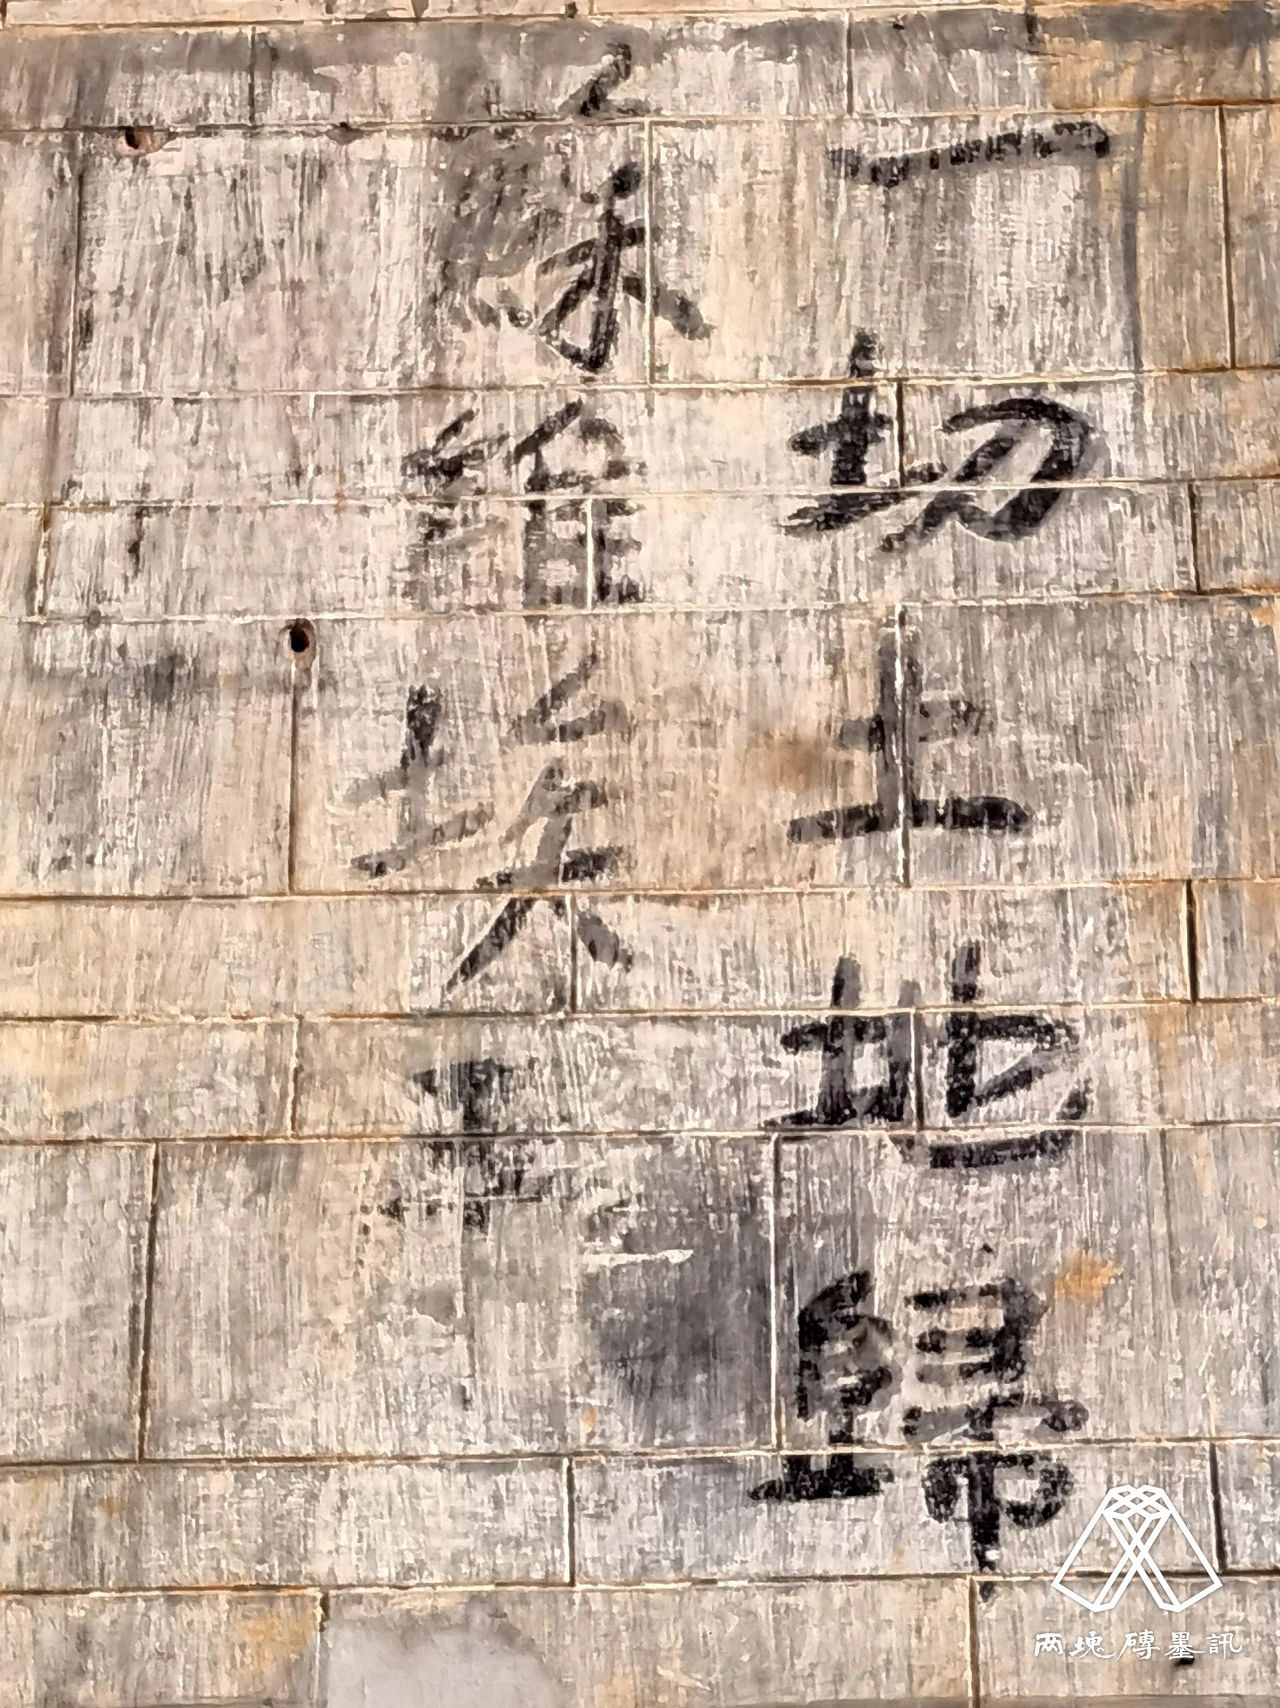 一切土地歸
蘇維埃
两塊磚墨訊